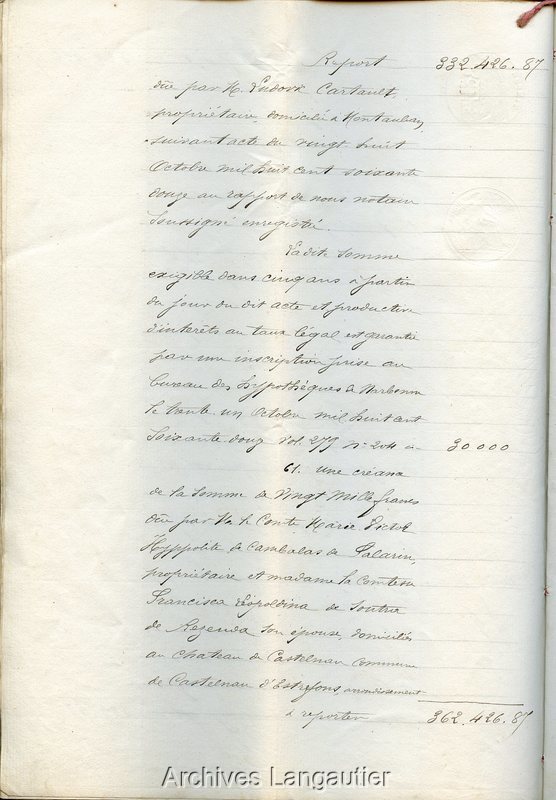 Report 332.426.87
due par M. Ludovic Cartault,
propriétaire, domicilié à Montauban,
suivant acte du vingt huit
Octobre mil huit cent soixante
douze au rapport de nous notaire
soussigné enregistré.
Ladite somme
exigible dans cinq ans à partir
du jour du dit acte et productive
d'intérêts au taux légal est garantie
par une inscription prise au
bureau des hypothèques de Narbonne
le trente un Octobre mil huit cent
soixante douze vol. 279 n° 204 ci 30000
61. une créance
de la somme de vingt mille francs
due par M. le Comte Marie Victor
Hyppolite de Cambolas de Palarin,
propriétaire et madame la Comtesse
Francisca Léopoldina de
de Rezenda son épouse, domiciliés
au chateau de Castelnau commune
de Castelnau d'Estrefons, arrondissement
à reporter 362.426.87
Archives Langautier